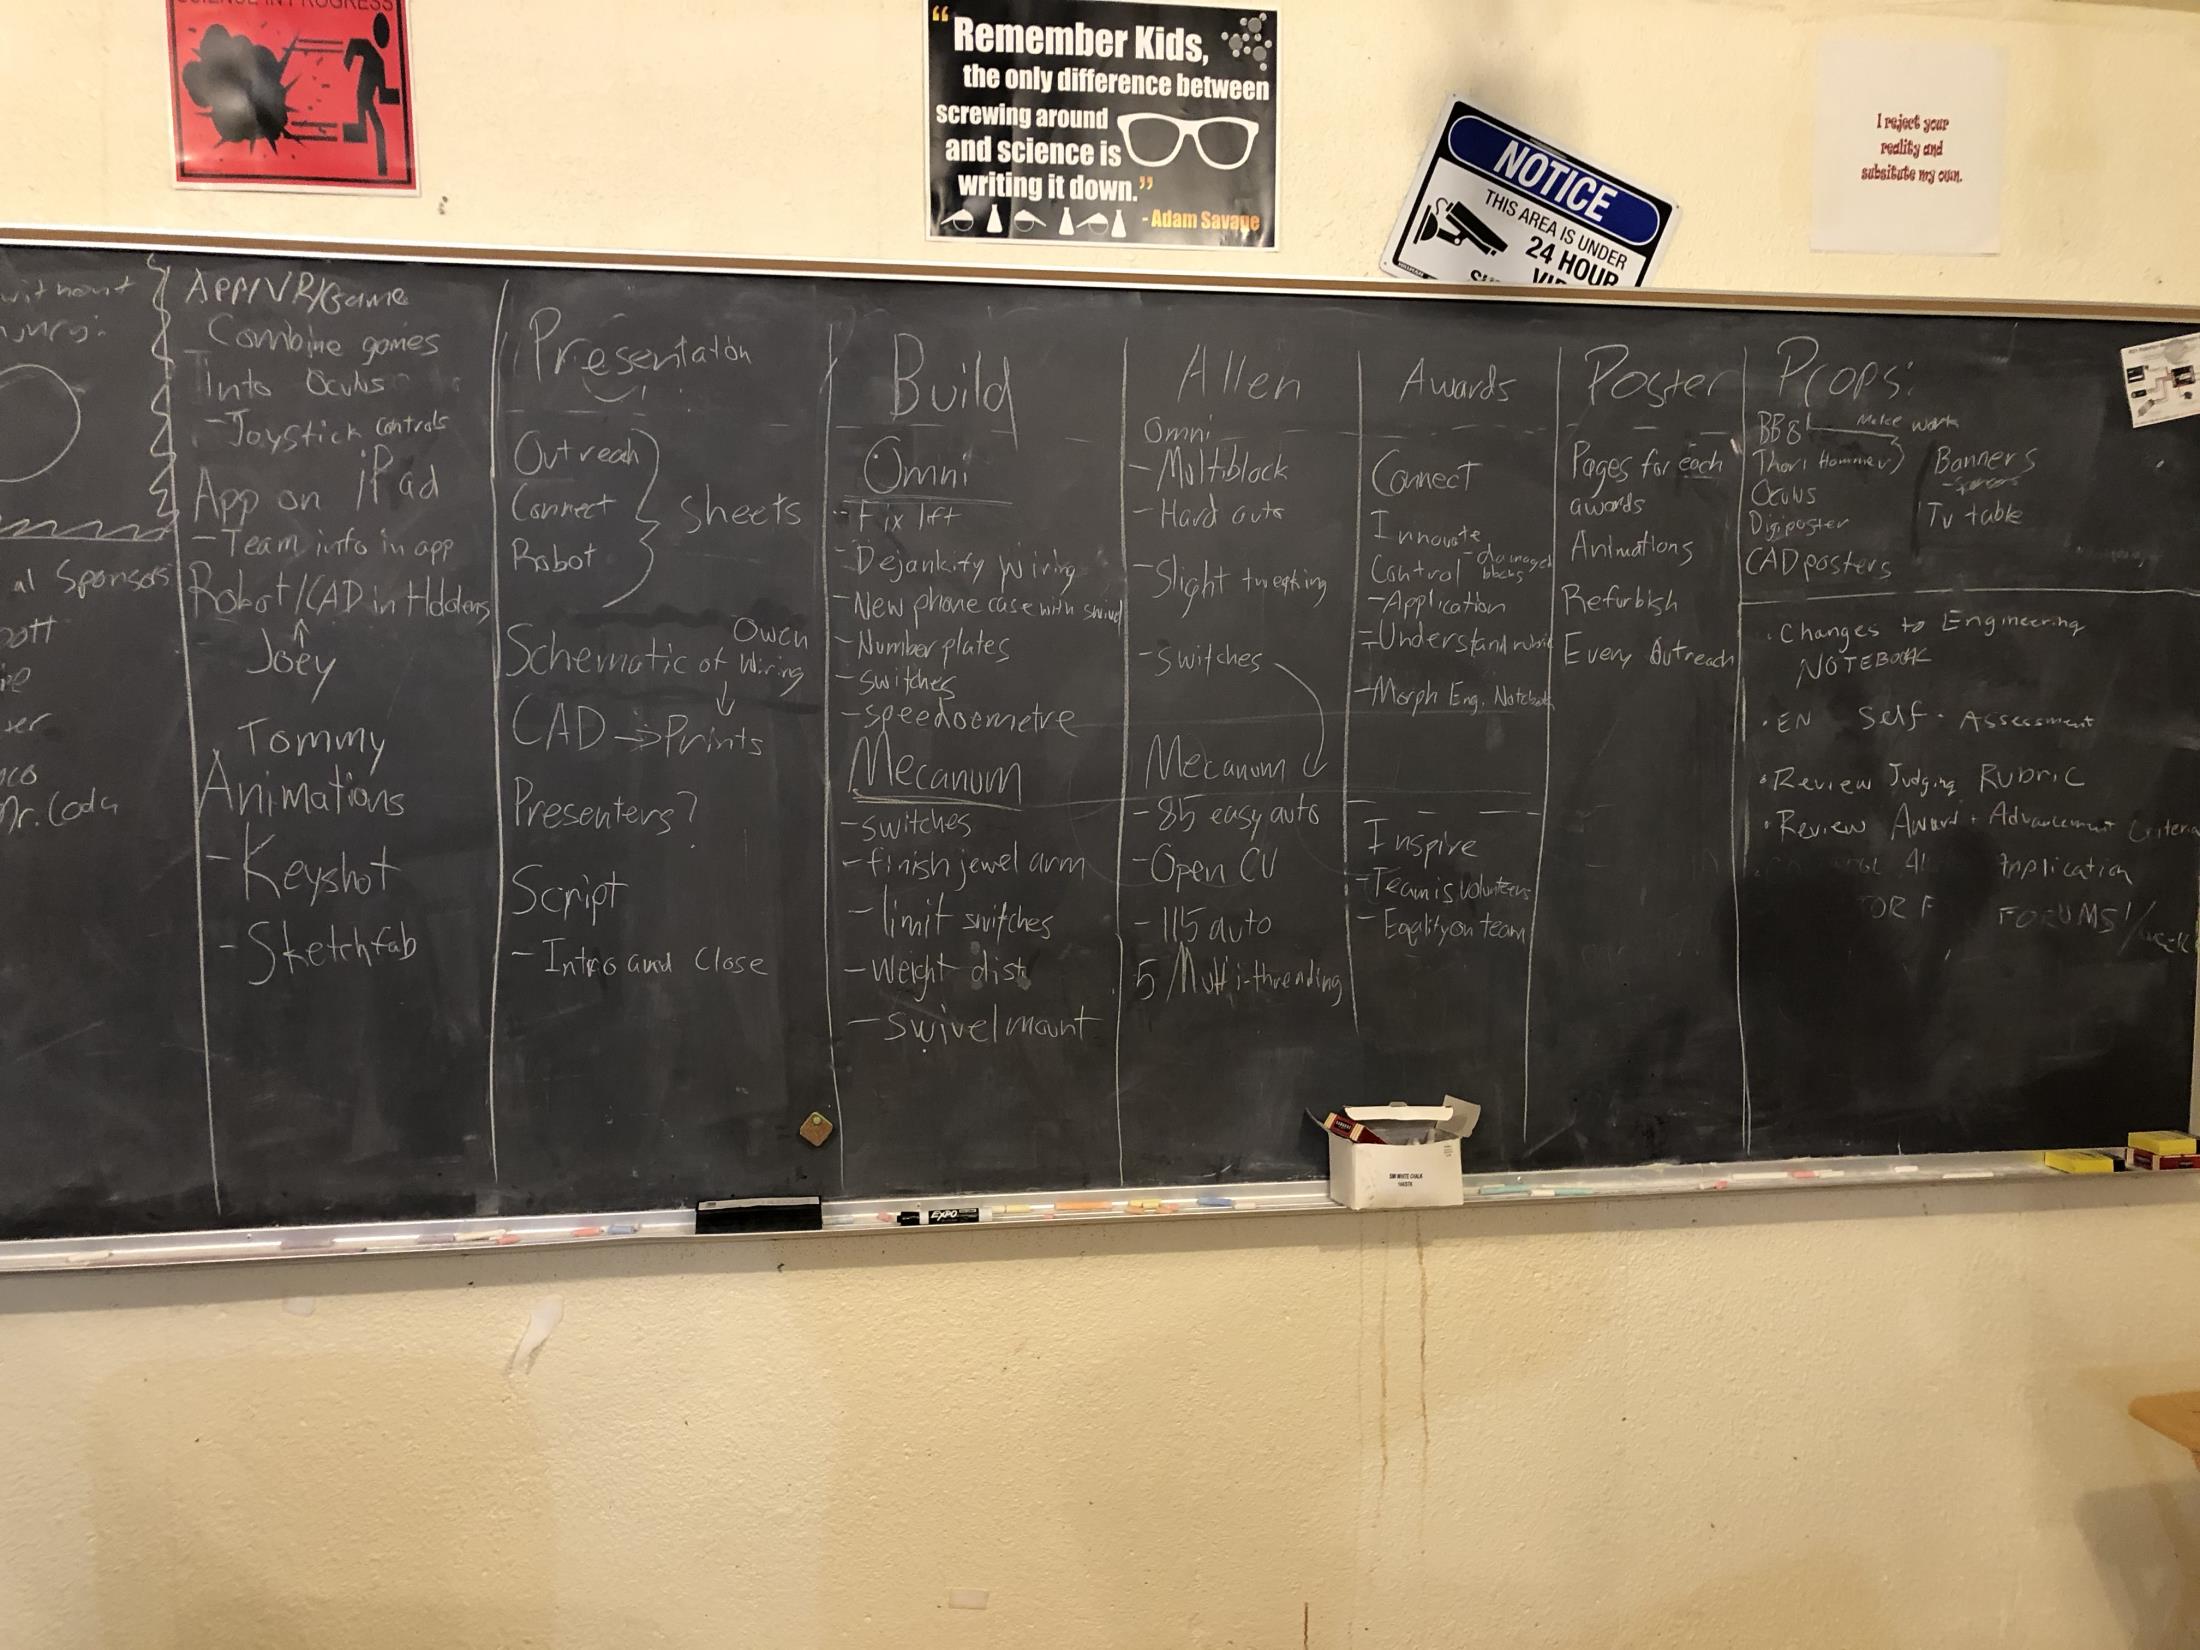 SCIENCE IN PROGRESS
"Remember Kids,
the only difference between
screwing around
and science is
writing it down."
- Adam Savage
NOTICE
THIS AREA IS UNDER
24 HOUR
I reject your
reality and
subsitute my own.
without
al Sponsors
Mr. Coda
APP/VR/Game
Combine games
Into Oculus
-Joystick controls
App on iPad
-Team info in app
Robot/CAD in
Joey
Tommy
Animations
- Keyshot
- Sketchfab
Presentation
Outreach
Connect
Robot
sheets
Owen
Schematic of wiring
CAD → Prints
Presenters?
Script
- Intro and close
Build
Omni
- Fix lift
- Dejankify wiring
- New phone case with swivel
- Number plates
- switches
- speedoemetre
Mecanum
- switches
- finish jewel arm
- limit switches
- weight dist
- swivel mount
Allen
Omni
- Multiblock
- Hard auto
- Slight tweaking
- switches
Mecanum
- 85 easy auto
- Open CV
- 115 auto
5 Multi-threading
Awards
Connect
Innovate
Control - damaged blocks
- Application
- Understand rubric
- Morph Eng. Notebook
Inspire
- Team is volunteers
- Eqality on team
Poster
Pages for each
awards
Animations
Refurbish
Every Outreach
Props:
BB8 Make work
Thors Hammer
Oculus
Digiposter
CAD posters
Banners
Tv table
• Changes to Engineering
NOTEBOOK
• EN Self-Assessment
• Review Judging Rubric
• Review Award + Advancement Criteria
Application
FOR F FORUMS!/week
SM WHITE CHALK
EXPO